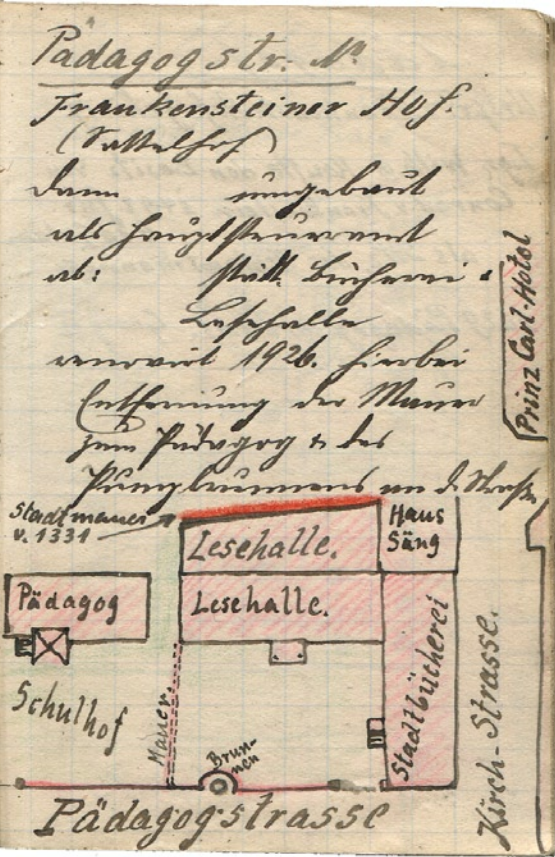 Pädagogstr. No
Frankensteiner Hof.
(Sattelhof)
dann umgebaut
als Hauptsteueramt
ab: städt. Bücherei &
Lesehalle
renoviert 1926. hierbei
Entfernung der Mauer
zum Pädagog & des
Pumpbrunnens an d. Straße
Prinz Carl-Hotel
Stadtmauer
v. 1331
Lesehalle.
Haus
Säng
Pädagog
Lesehalle.
Stadtbücherei
Schulhof
Mauer.
Brun-
nen
Kirch-Strasse.
Pädagogstrasse